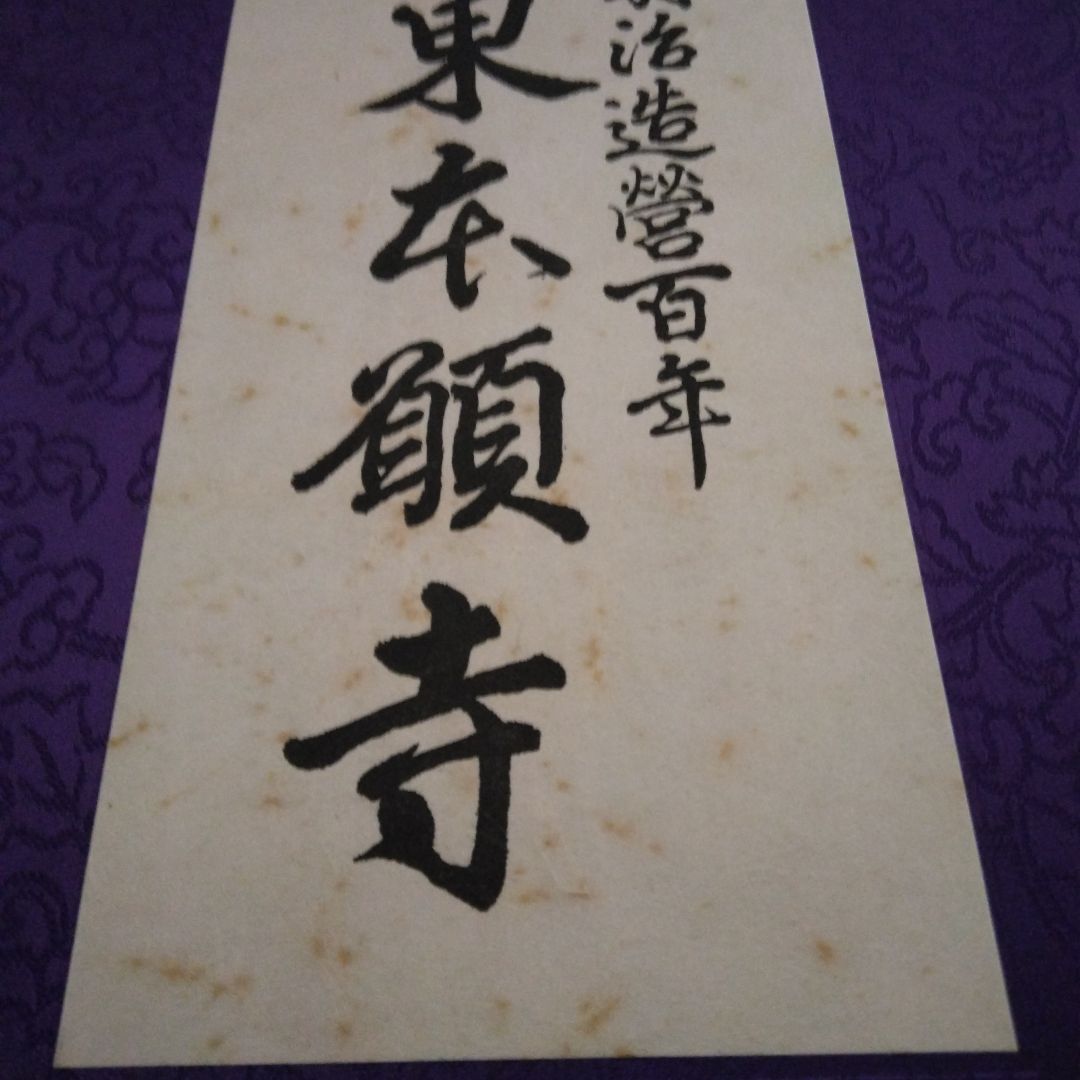 治造營百年
東本願寺